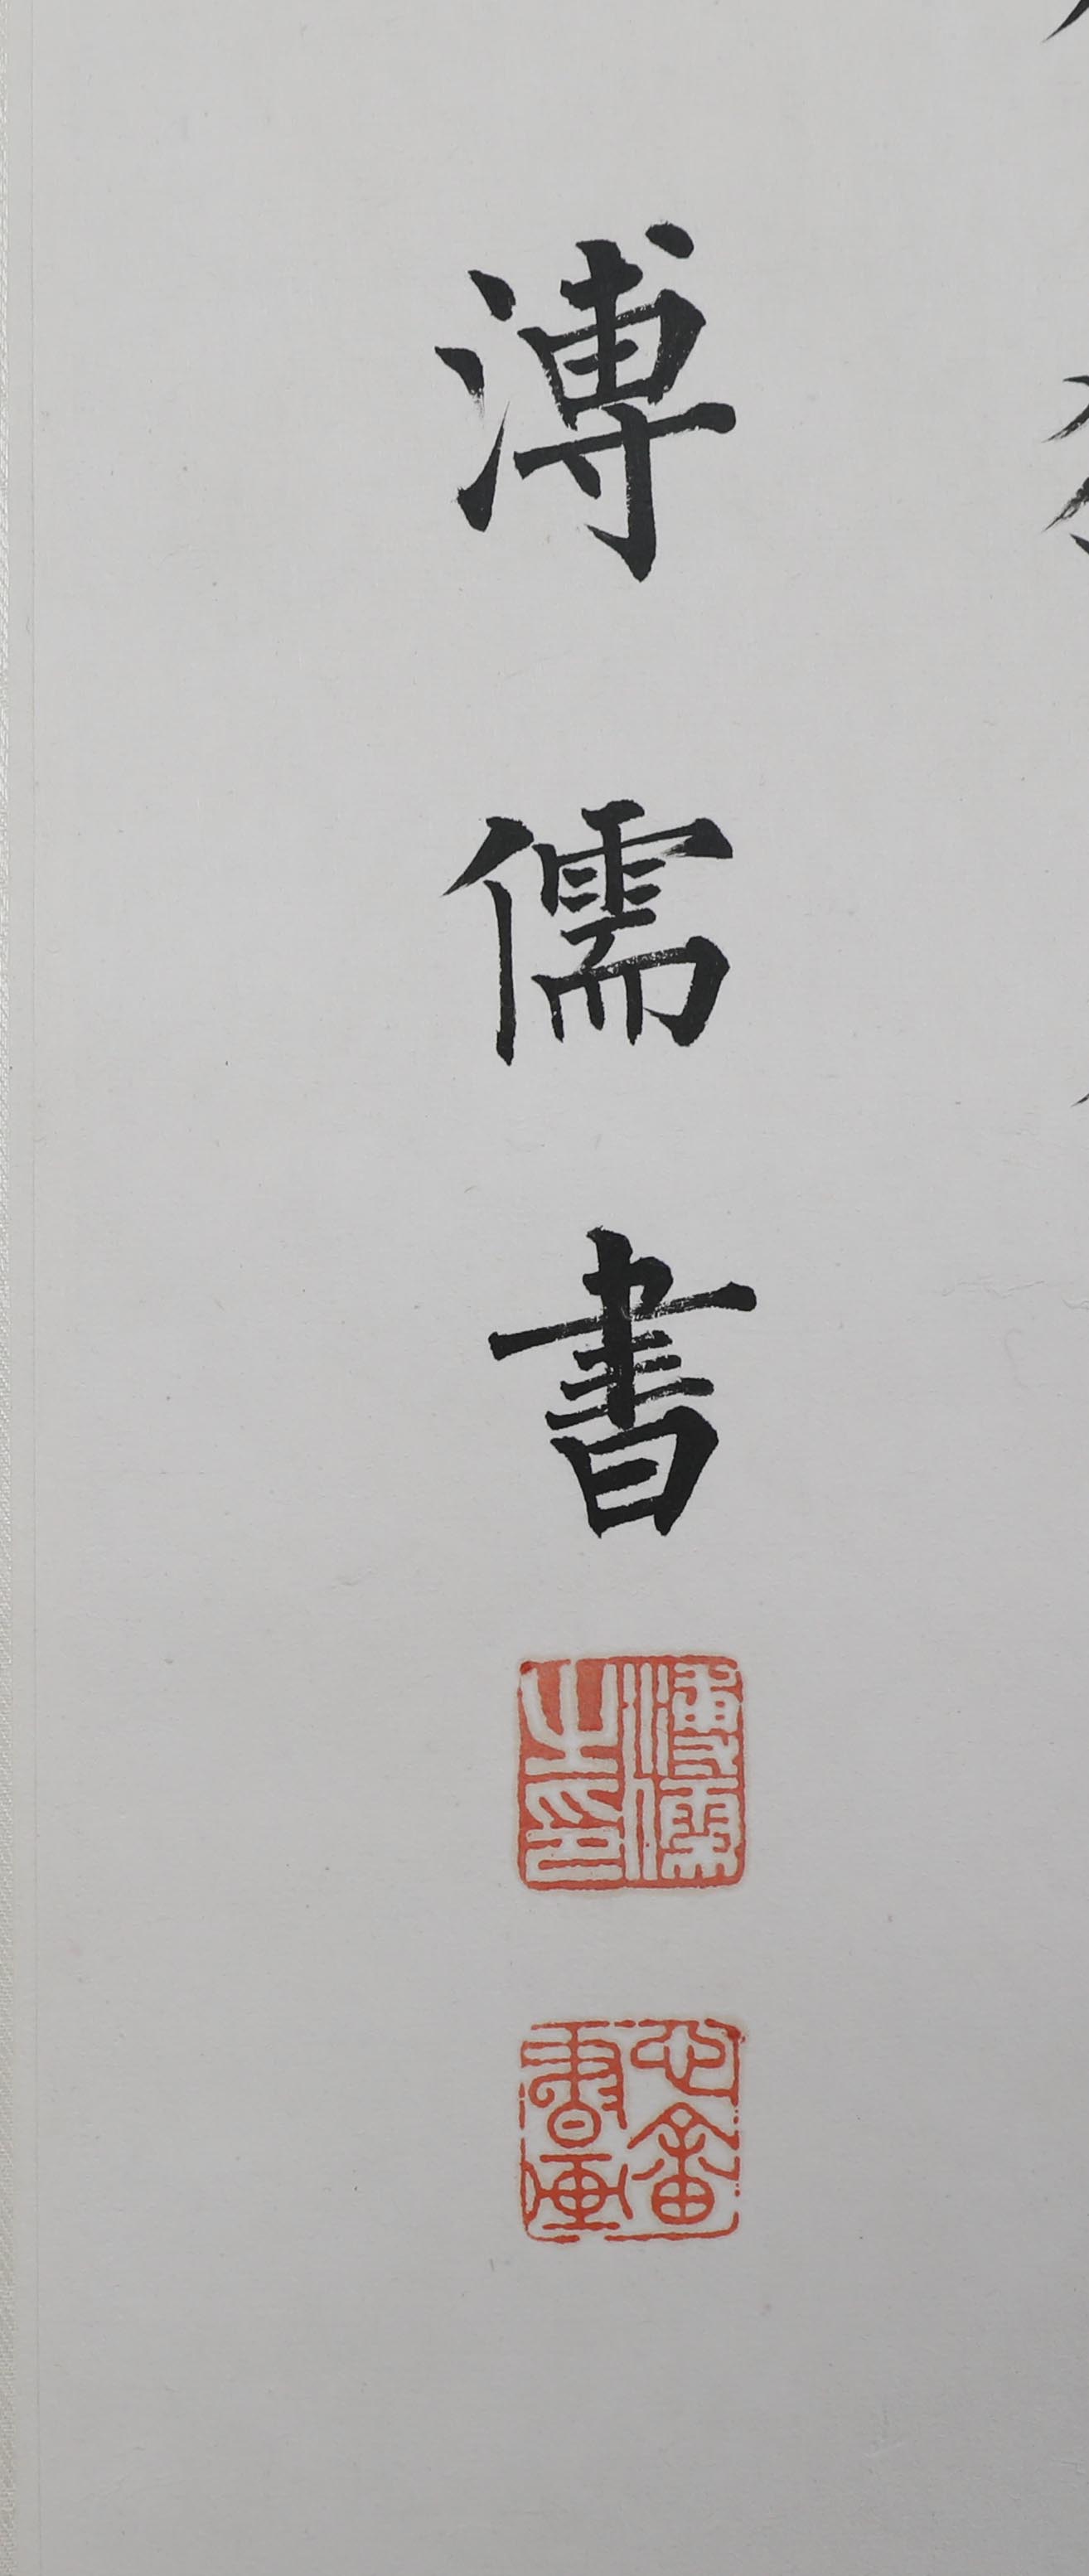 溥儒書
溥儒之印
心畬書畫